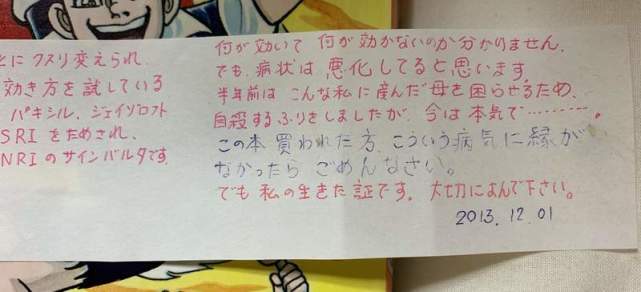 とに クスリ変えられ、
効き方を試している
パキシル、ジェイゾロフト
SRIをためされ、
NRIのサインバルタです。
何が効いて 何が効かないのか分かりません。
でも、病状は 悪化してると思います。
半年前は こんな私に産んだ母を困らせるため、
自殺するふりをしましたが、今は本気で………。
この本 買われた方、こういう病気に縁が
なかったら ごめんなさい。
でも 私の生きた証です。大切によんで下さい。
2013.12.01